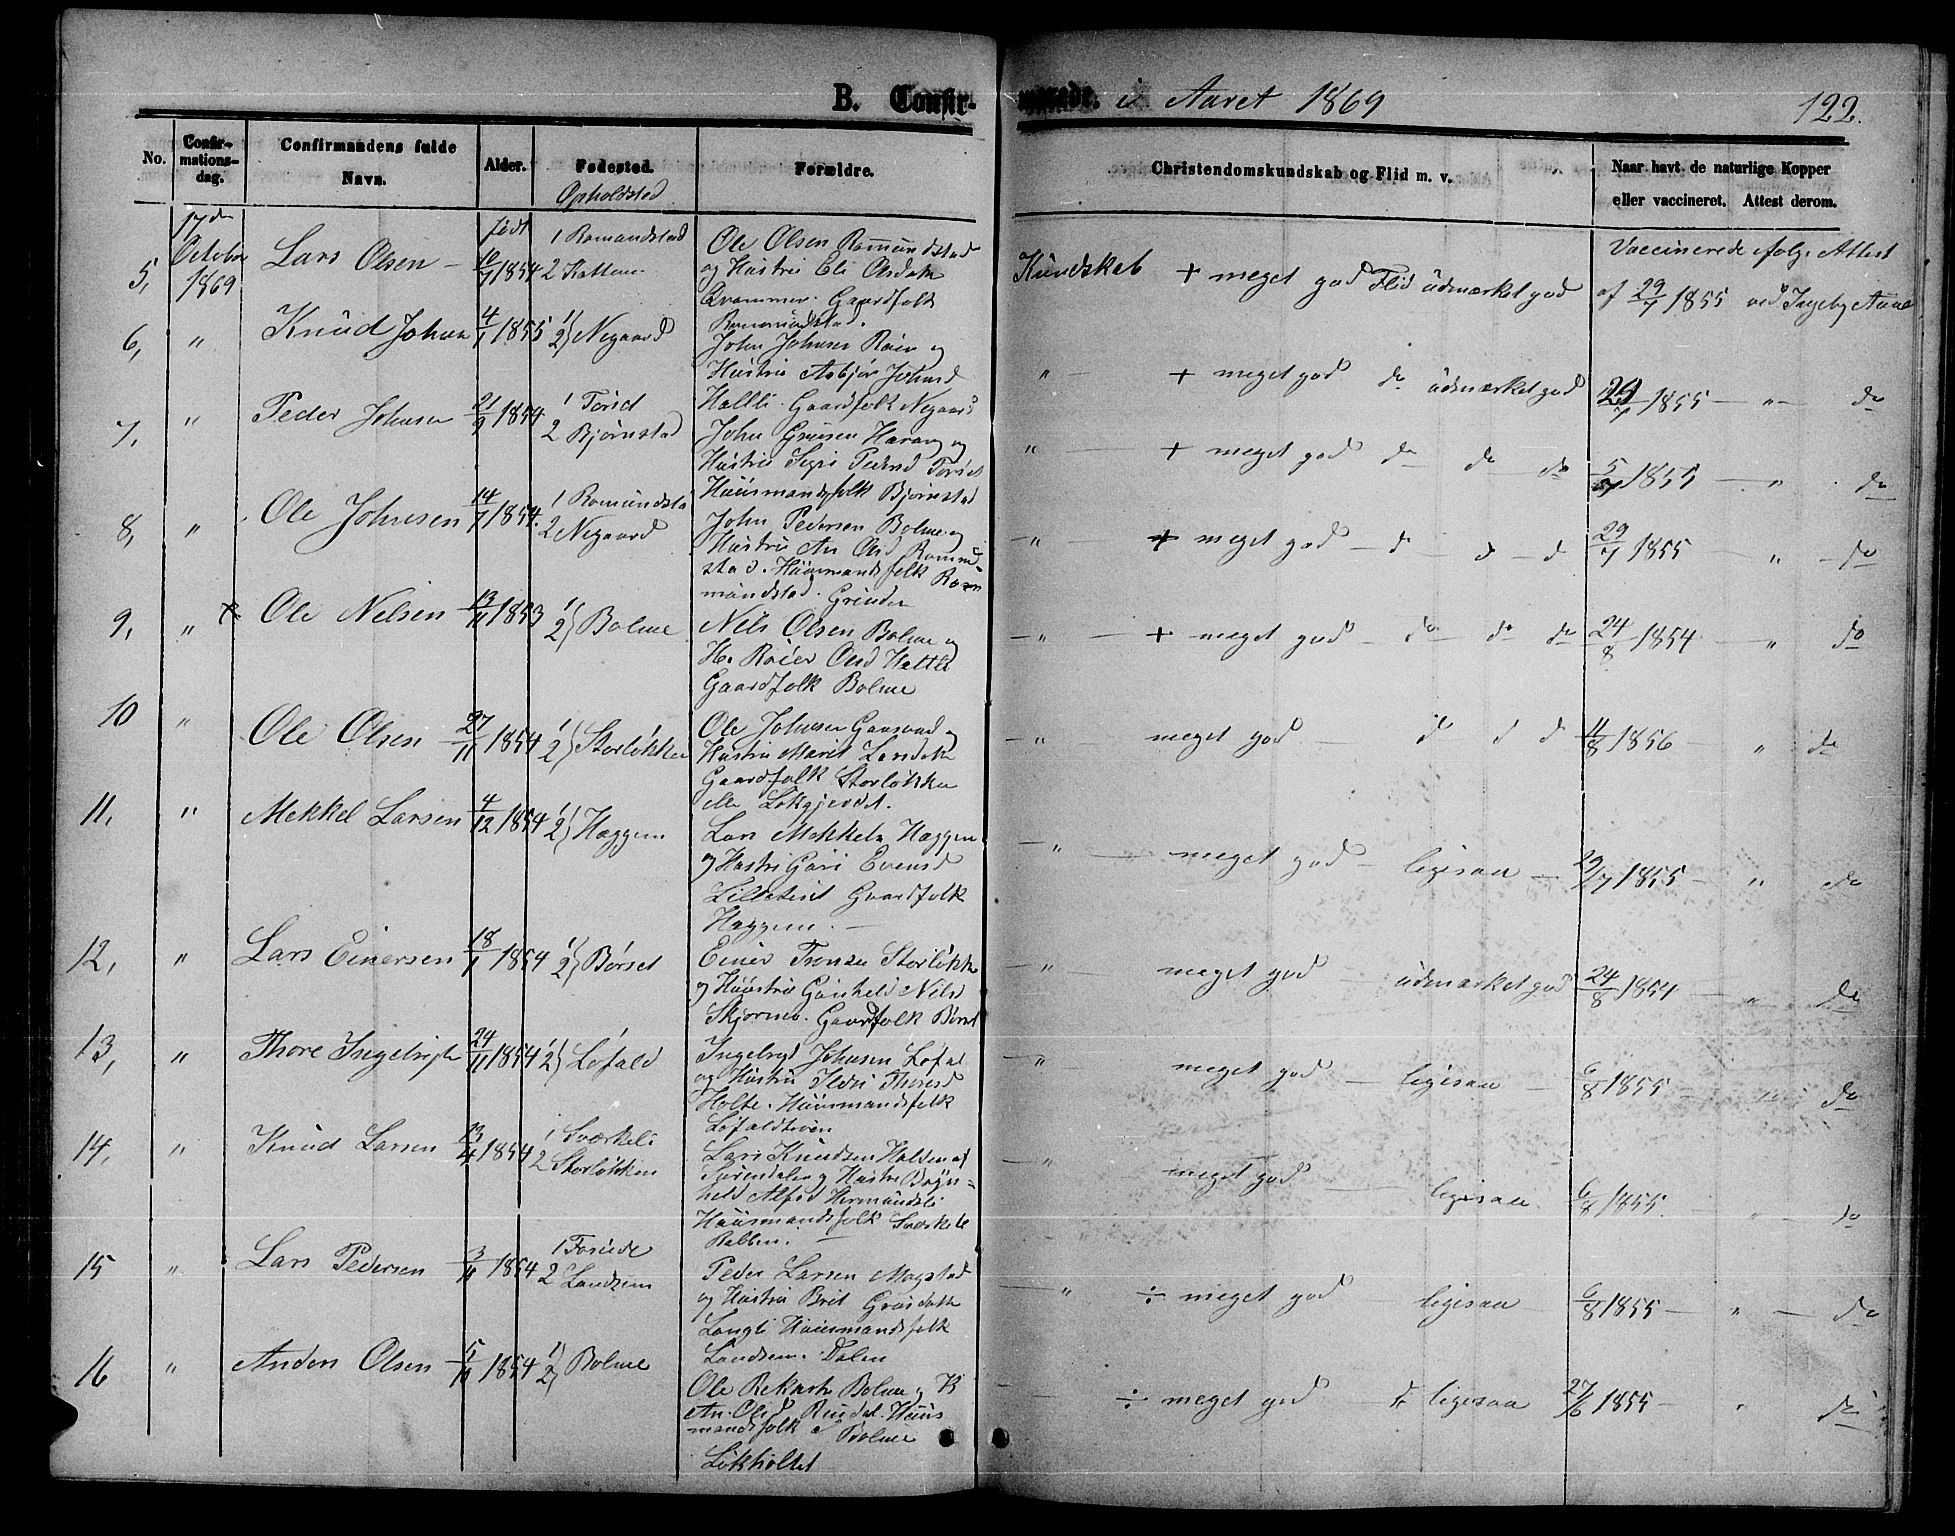 B. Confirmerede. i Aaret 1869
122.
No.
Confirmationsdag.
Confirmandens fulde Navn.
Alder.
Fødested.
Opholdssted
Forældre.
Christendomskundskab og Flid m. v.
Naar havt de naturlige Kopper
eller vaccineret. Attest derom.
5, 17de October 1869 Lars Olsen – født 16/7 1854 1 Romundstad 2 Kattem
Ole Olsen Romundstad
og Hustru Eli Olsdatte
Gaardfolk
Romundstad.
Kundskab + meget god Flid üdmærket god
Vaccinerede ifølge Attest
af 29/7 1855 ved Ingeb Aune
6, " Knud Johns 4/1 1855 1 2} Negaard
John Johnsen Røen og
Hustru Asbjør Johnsd
Haltli Gaardfolk Negaard
" + meget god do üdmærket god 29/7 1855 – " – do
7, " Peder Johnsen 21/9 1854 1 Torset 2 Bjørnstad
John Harang og
Hustru Sigri Pedersd Torset
Huusmandsfolk Bjørnstad
" + meget god do do do 5/7 1855 – " do
8, " Ole Johnsen 14/7 1854. 1 Romundsta 2 Negaard
John Pedersen Bolme og
Hustru An Olsd Romund-
stad. Huusmandsfolk Ro-
mundstad.
" + meget god – d – d – d 29/7 1855 " do
9, " Ole Nelsen 13/11 1853 1 2} Bolme
Nils Olsen Bolme og
H. Olsd Haltli
Gaardfolk Bolme
" + meget god – do do do 24/8 1854 " do
10 " Ole Olsen 27/11 1854 1 2} Storløkken
Ole Johnsen og
Hustru Marit Larsdatte
Gaardfolk Storløkken
elle Løkgjerdet.
" meget god – d d d 11/8 1856 – " do
11, " Mekkel Larsen 4/12 1854 1 2} Haggen
Lars Mekkels Haggen
og Hustru Guri Evensd
Gaardfolk
Haggen. –
" meget god – ligesaa – 29/7 1855 – " do
12, " Lars Einersen 18/1 1854 1 2} Børset
Einer Storløkk
og Huustru Gunhild Nilsd
Skjermo. Gaardfolk Børset
" meget god – üdmærket god 24/8 1854 – " do
13, " Thore Ingebrigts 24/11 1854 1 2} Løfald
Ingebrgt Johnsen Løfal
og Hustru Ildri Thoresd
Holte. Huusmandsfolk
" meget god – ligesaa – 6/8 1855 – " do
14, " Knud Larsen 13/4 1854 1 Sværkeli 2 Storløkken
Lars Knudsen Halsen af
Surendalen og Hustru Bryn-
hild
Huusmandsfolk Sværkeli
" meget god – ligesaa. 6/8 1855. – " – do
15 " Lars Pedersen 3/11 1854 1 2 Landsem
Peder Larsen Mogstad
og Hustru Brit
Langli Huusmandsfolk
Landsem. Dalen
" ÷ meget god ligesaa – 6/8 1855 – " – do
16 " Anders Olsen 1854 1 2} Bolme
Ole Bolme og H
An. Olsd Rindal. Huus
mandsfolk Bolme
Løkholtet
÷ meget god – do ligesaa 27/6 1855 – " do